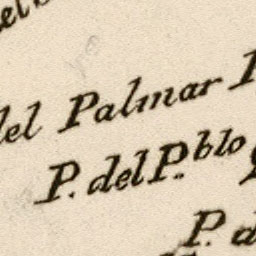 del Palmar
P. del P.blo
P. d